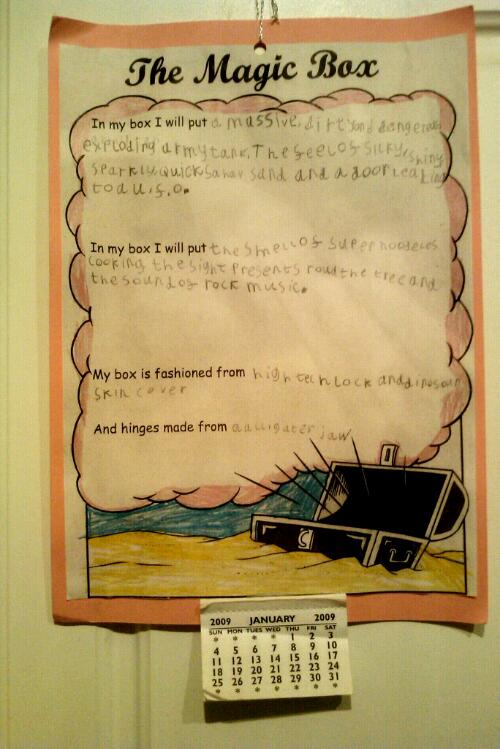 The Magic Box
In my box I will put a massive, dirty and dangerous
exploding army tank, The feel of silky, shiny
sparkly, quick sahar sand and a door leaking
to a u.f.o.
In my box I will put the smell of super noodeles
cooking the sight Presents roud the tree and
the sound of rock music.
My box is fashioned from high tech lock and dinosaur
skin cover
And hinges made from a alligater jaw
2009 JANUARY 2009
SUN MON TUES WED THU FRI SAT
* * * * 1 2 3
4 5 6 7 8 9 10
11 12 13 14 15 16 17
18 19 20 21 22 23 24
25 26 27 28 29 30 31
* * * * * * *